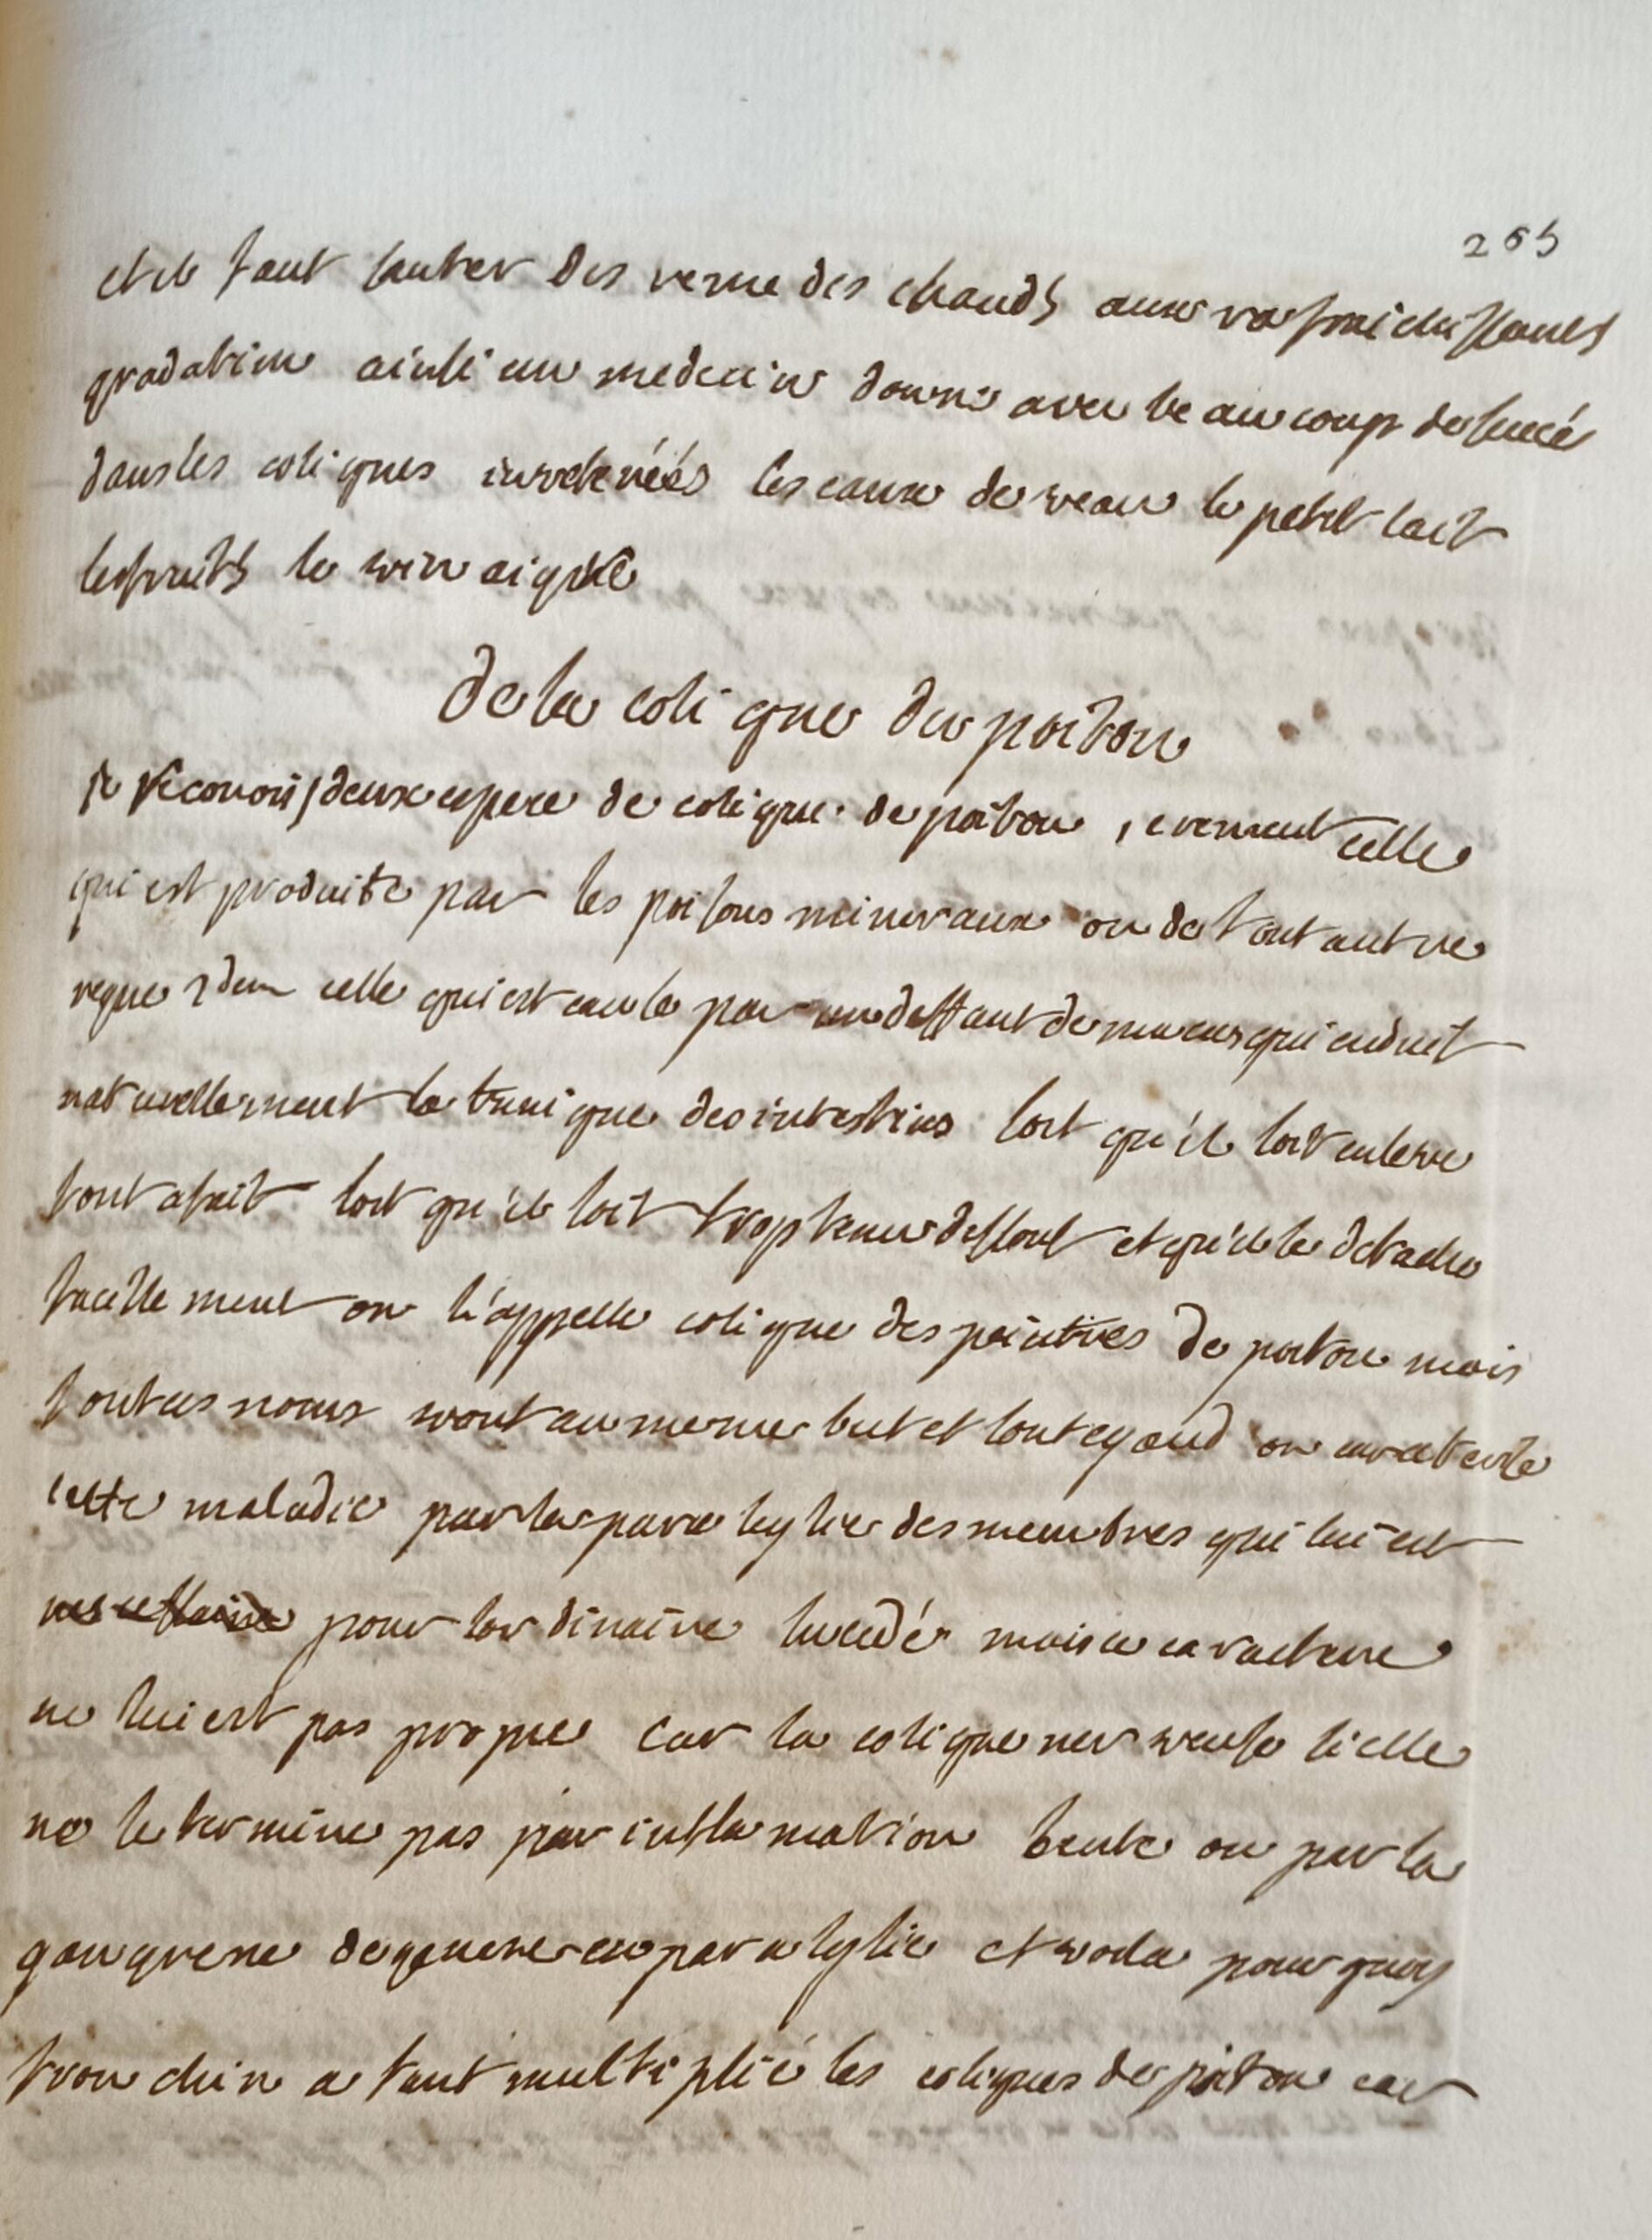 265
et il faut sauter des remedes chauds aux rafraichissants
gradatim ainsi un medecin donné avec beaucoup de succé
dans les coliques inveterées les eaux de veau le petit lait
les fruits le vin aigre
de la colique du poitou
je reconois deux espece de colique de poitou 1 erement celle
qui est produite par les poisons mineraux ou de tout autre
regne 2dem celle qui est causé par un deffaut de mucus qui enduit
naturellement la tunique des intestins soit qu'il soit enlevé
tout afait soit qu'il soit trop tenu dessout et qu'il se detache
facillement on l'appelle colique des peintres de poitou mais
tout ces noms vont au meme but et sont egaud on caracterise
cette maladie par la paralysie des membres qui lui est
pour lordinaire succedé mais ce caractere
ne lui est pas propre car la colique nerveuse si elle
ne se termine pas par inflamation lente ou par la
gangrene degenere en paralysie et voila pourquoy
tronchin a tant multiplié les coliques de poitou car